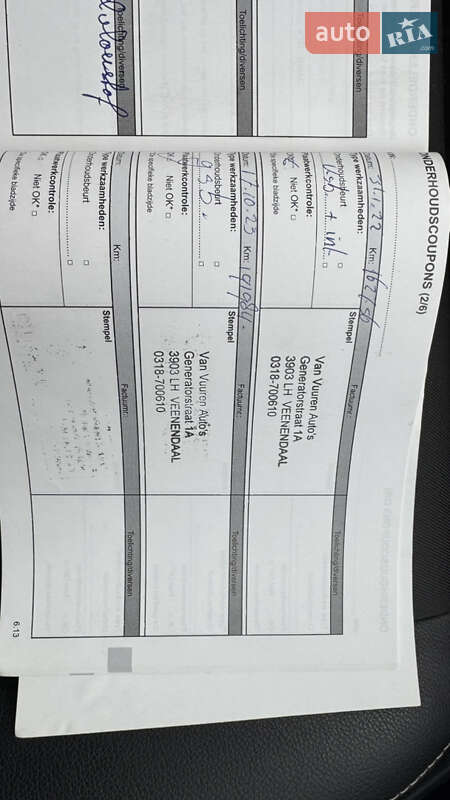 auto RIA
.com
Toelichting/diversen
Toelichting/diversen
Toelichting/diversen
ONDERHOUDSCOUPONS (2/6)
Datum: 31.1.22 Km: 162796 Factuurnr.: Toelichting/diversen
Type werkzaamheden: Stempel
Onderhoudsbeurt □
Plaatwerkcontrole: Van Vuuren Auto's
Generatorstraat 1A
Niet OK* □ 3903 LH VEENENDAAL
0318-700610
*Zie specifieke bladzijde
Datum: 17.10.23 Km: Factuurnr.: Toelichting/diversen
Type werkzaamheden: Stempel
Onderhoudsbeurt □
Plaatwerkcontrole: Van Vuuren Auto's
Generatorstraat 1A
Niet OK* □ 3903 LH VEENENDAAL
0318-700610
*Zie specifieke bladzijde
Datum: Km: Factuurnr.: Toelichting/diversen
Type werkzaamheden: Stempel
Onderhoudsbeurt □
Plaatwerkcontrole:
Niet OK* □
*Zie specifieke bladzijde
6.13